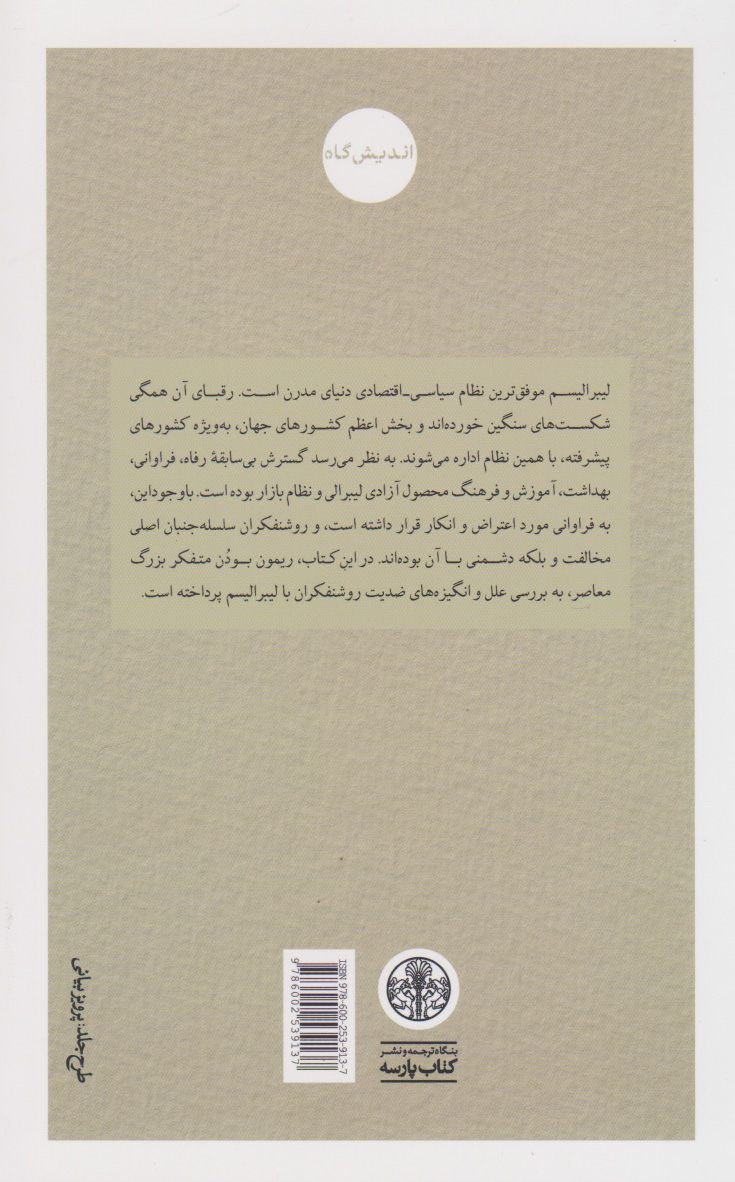 اندیش‌گاه
لیبرالیسم موفق‌ترین نظام سیاسی-اقتصادی دنیای مدرن است. رقبای آن همگی
شکست‌های سنگین خورده‌اند و بخش اعظم کشورهای جهان، به‌ویژه کشورهای
پیشرفته، با همین نظام اداره می‌شوند. به نظر می‌رسد گسترش بی‌سابقهٔ رفاه، فراوانی،
بهداشت، آموزش و فرهنگ محصول آزادی لیبرالی و نظام بازار بوده است. باوجوداین،
به فراوانی مورد اعتراض و انکار قرار داشته است، و روشنفکران سلسله‌جنبان اصلی
مخالفت و بلکه دشمنی با آن بوده‌اند. در این کتاب، ریمون بودُن متفکر بزرگ
معاصر، به بررسی علل و انگیزه‌های ضدیت روشنفکران با لیبرالیسم پرداخته است.
بنگاه ترجمه و نشر
کتاب پارسه
ISBN 978-600-253-913-7
9 786002 539137
طرح جلد: پرویز بیانی